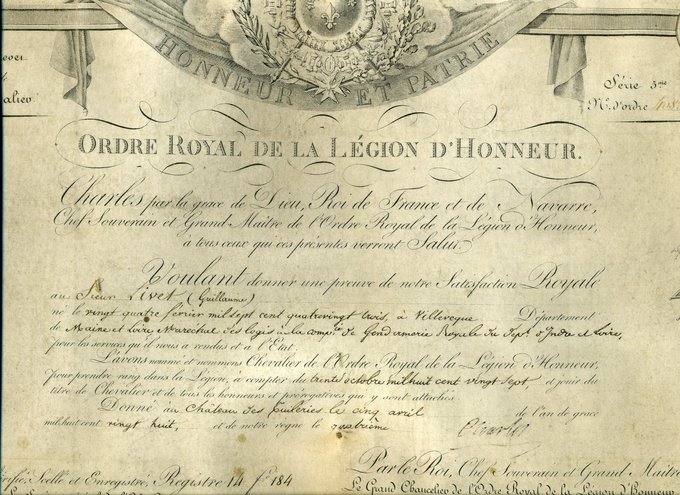 HONNEUR ET PATRIE
Série 5me
N.º d'ordre
ORDRE ROYAL DE LA LÉGION D'HONNEUR.
Charles par la grace de Dieu, Roi de France et de Navarre,
Chef Souverain et Grand Maître de l'Ordre Royal de la Légion d'Honneur,
à tous ceux qui ces présentes verront Salut.
Voulant donner une preuve de notre Satisfaction Royale
au Sieur Livet (Guillaume)
né le vingt quatre février mil sept cent quatrevingt trois, à Villeveque Département
de Maine et Loire Maréchal des logis à la comp.ie de Gendarmerie Royale du Dép.t d'Indre et Loire,
pour les services qu'il nous a rendus et à l'État
L'avons nommé et nommons Chevalier de l'Ordre Royal de la Légion d'Honneur,
pour prendre rang dans la Légion, à compter du trente octobre mil huit cent vingt sept et jouir du
titre de Chevalier et de tous les honneurs et prérogatives qui y sont attachés.
Donné au Château des Tuileries le cinq avril de l'an de grace
mil huit cent vingt huit, et de notre règne le quatrième
Charles
Scellé et Enregistré, Registre 14 f.º 184
Par le Roi, Chef Souverain et Grand Maître
Le Grand Chancelier de l'Ordre Royal de la Légion d'Honneur